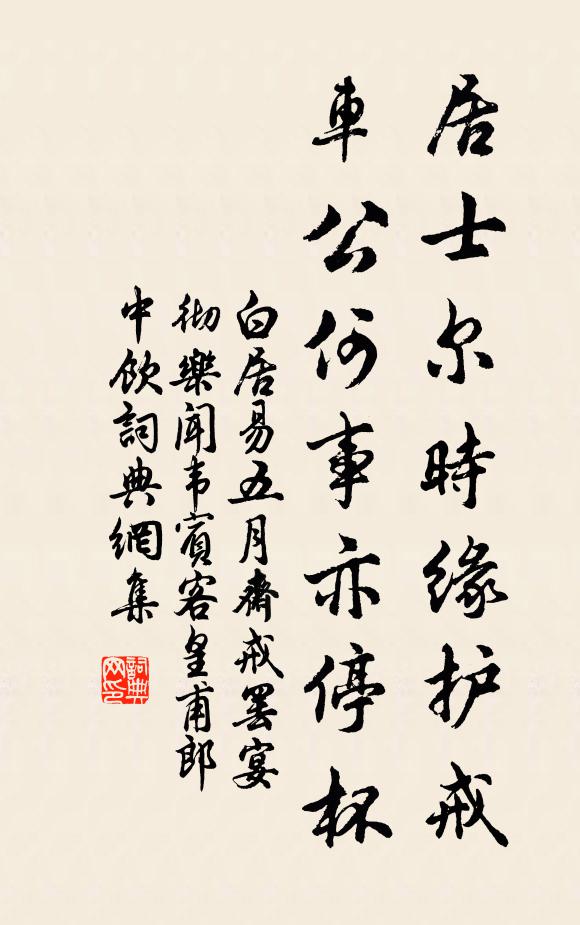 居士尔時缘护戒
車公何事亦停杯
白居易五月齋戒罢宴
彻樂聞韦賓客皇甫郎
中飲詞典網集
詞典
网印